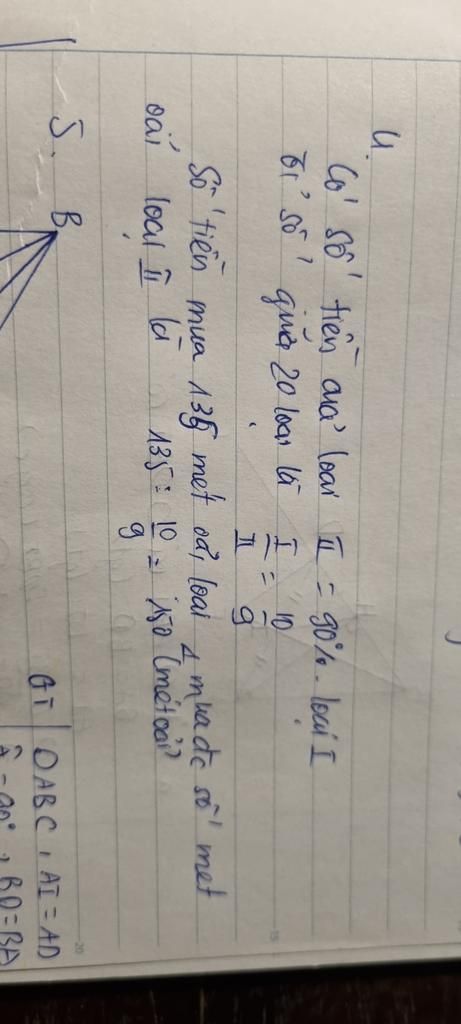 4.
Có số tiền của loại II = 90%. loại I
tỉ số giữa 2 loại là I/II = 10/9
Số tiền mua 135 mét vải loại 1 mua đc số mét
vải loại II là 135 : 10/9 = 150 (mét vải)
5. B
GT | ABC, AI = AD
Â = 90°, BD = BA
20